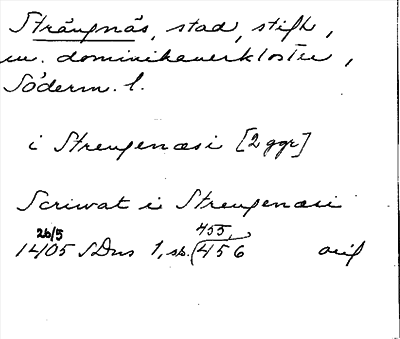 Strängnäs, stad, stift,
m. dominikanerkloster,
Söderm. l.
i Strengenæsi [2 ggr]
Scriwat i Strengenæsi
26/5 455,
1405 SDns 1, sb. (456 orig